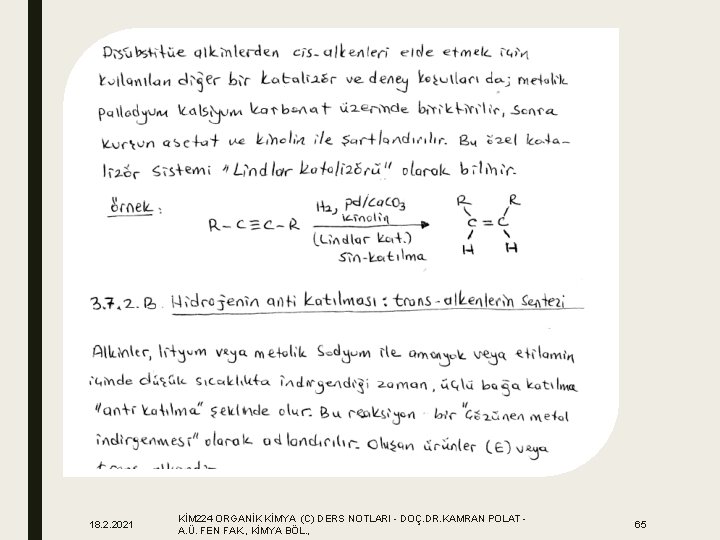 Disübstitüe alkinlerden cis-alkenleri elde etmek için
kullanılan diğer bir katalizör ve deney koşulları da; metalik
palladyum kalsiyum karbonat üzerinde biriktirilir, sonra
kurşun asetat ve kinolin ile şartlandırılır. Bu özel kata-
lizör sistemi "Lindlar katalizörü" olarak bilinir.
örnek:
R-C≡C-R
H2, pd/CaCO3
kinolin
(Lindlar kat.)
sin-katılma
R R
C=C
H H
3.7.2.B. Hidrojenin anti katılması: trans-alkenlerin sentezi
Alkinler, lityum veya metalik sodyum ile amonyak veya etilamin
içinde düşük sıcaklıkta indirgendiği zaman, üçlü bağa katılma
"anti katılma" şeklinde olur. Bu reaksiyon bir "çözünen metal
indirgenmesi" olarak adlandırılır. Oluşan ürünler (E) veya
18.2.2021
KİM224 ORGANİK KİMYA (C) DERS NOTLARI - DOÇ.DR.KAMRAN POLAT -
A.Ü. FEN FAK., KİMYA BÖL.,
65